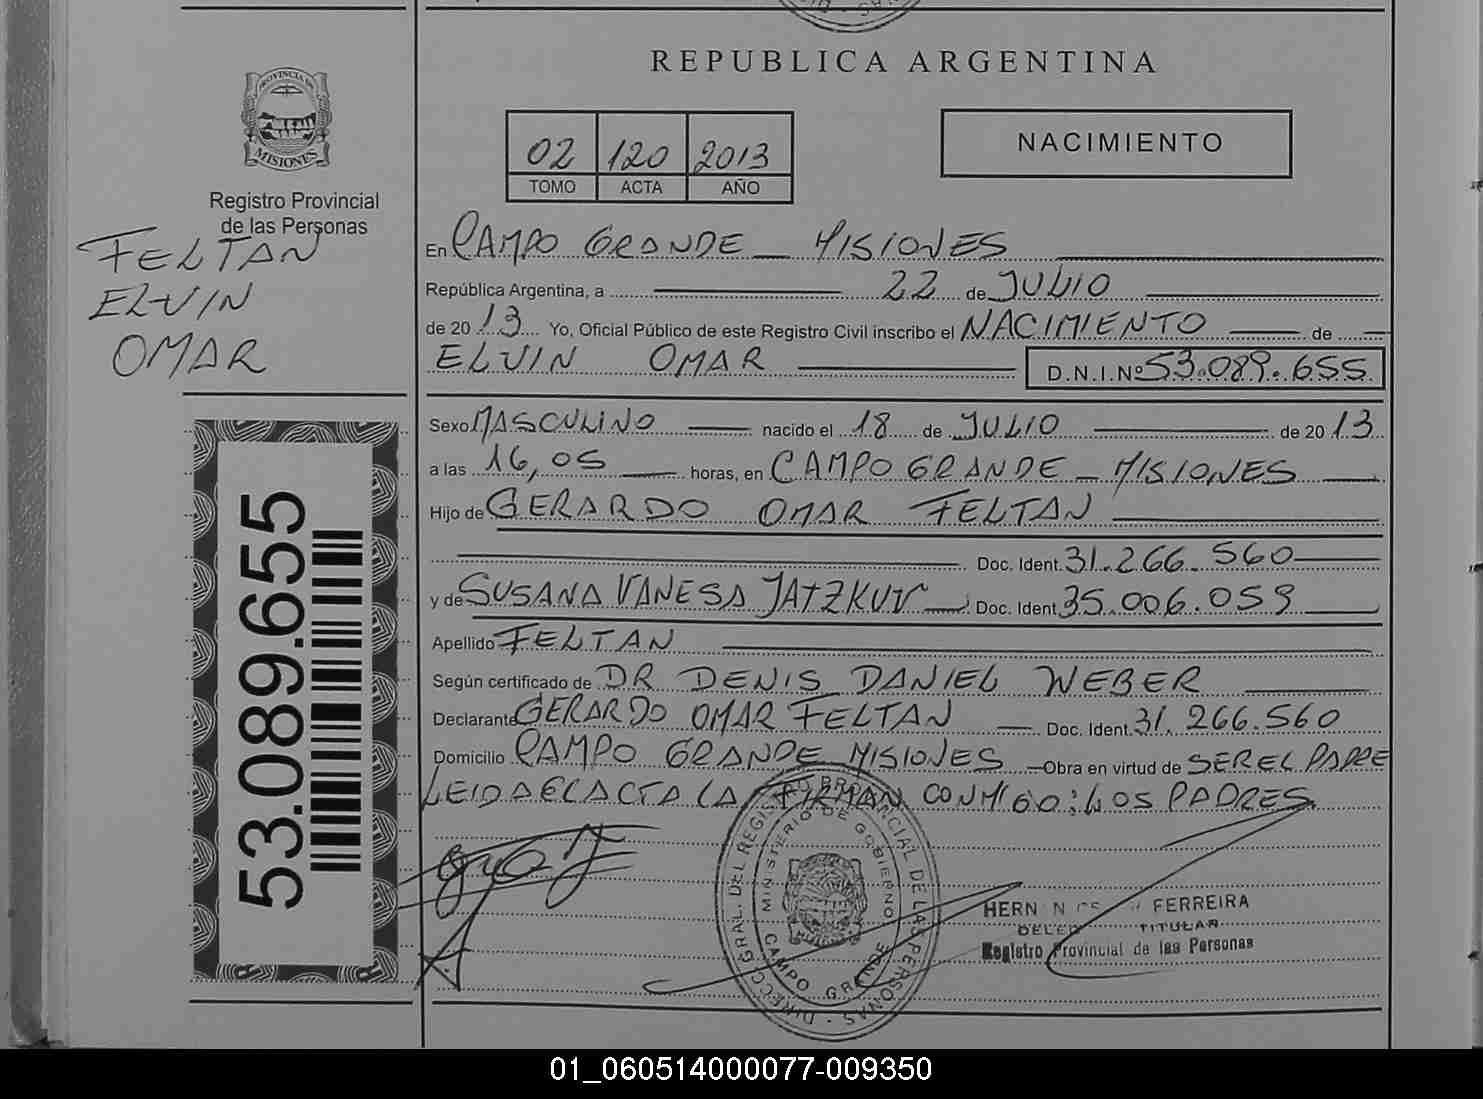 REPUBLICA ARGENTINA
PROVINCIA DE
MISIONES
Registro Provincial
de las Personas
FELTAN
ELVIN
OMAR
02 120 2013
TOMO ACTA AÑO
NACIMIENTO
En CAMPO GRANDE - MISIONES
República Argentina, a 22 de JULIO
de 2013 Yo, Oficial Público de este Registro Civil inscribo el NACIMIENTO de
ELVIN OMAR D.N.I.Nº 53.089.655
Sexo MASCULINO nacido el 18 de JULIO de 2013
a las 16,05 horas, en CAMPO GRANDE - MISIONES
Hijo de GERARDO OMAR FELTAN
Doc. Ident. 31.266.560
y de SUSANA VANESA Doc. Ident. 35.006.059
Apellido FELTAN
Según certificado de DR DENIS DANIEL WEBER
Declarante GERARDO OMAR FELTAN Doc. Ident. 31.266.560
Domicilio CAMPO GRANDE MISIONES - Obra en virtud de SER EL PADRE
LEIDA EL ACTA LA FIRMAN CONMIGO: LOS PADRES
53.089.655
DIRECC. GRAL. DEL REGISTRO PROVINCIAL DE LAS PERSONAS
MINISTERIO DE GOBIERNO
CAMPO GRANDE
HERN N FERREIRA
TITULAR
Registro Provincial de las Personas
01_060514000077-009350